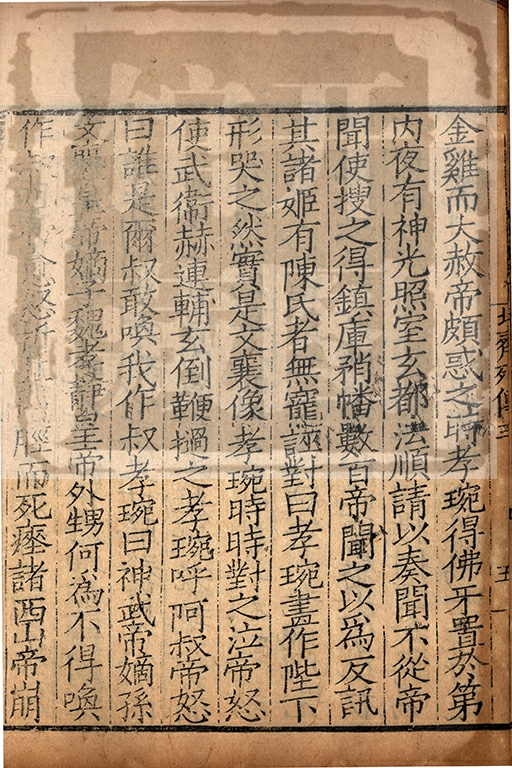 金雞而大赦帝頗惑之時孝琬得佛牙置於第
内夜有神光照室玄都法順請以奏聞不從帝
聞使搜之得鎮庫矟幡數百帝聞之以為反訊
其諸姬有陳氏者無寵誣對曰孝琬畫作陛下
形哭之然實是文襄像孝琬時時對之泣帝怒
使武衞赫連輔玄倒鞭撾之孝琬呼阿叔帝怒
曰誰是爾叔敢喚我作叔孝琬曰神武帝嫡孫
文襄皇帝嫡子魏孝靜皇帝外甥何為不得喚
作叔也帝愈怒折其兩脛而死瘞諸西山帝崩
北齊列傳三
五